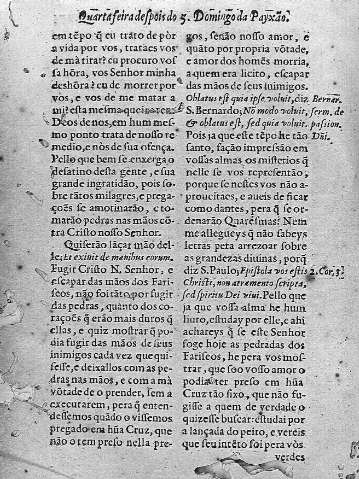 Quarta feira despois do 5. Domingo da Payxão.
em tẽpo q̃ eu trato de pòr
a vida por vos, trataes vos
de mà tirar? eu procuro vos
sa hõra, vos Senhor minha
deshõra? eu de morrer por
vos, e vos de me matar a
mi? esta mesma
Deos de nos, em hum mes-
mo ponto trata de nosso re
medio, e nòs de sua ofença.
Pello que bem se enxerga o
desatino desta gente, e sua
grande ingratidão, pois so-
bre tãtos milagres, e prega-
çoẽs se amotinarão, e to-
marão pedras nas mãos cõ-
tra Cristo nosso Senhor.
Quiserão laçar mão del-
le; Et exiuit de manibus eorum.
Fugir Cristo N. Senhor, e
escapar das mãos dos Fari-
seos, não foi tãto por fugir
das pedras, quanto dos co-
rações q̃ erão mais duros q̃
ellas, e quiz mostrar q̃ po
dia fugir das mãos de seus
inimigos cada vez que qui-
sesse, e deixallos com as pe-
dras nas mãos, e com a mà
võtade de o prender, sem a
executarem, pera q̃ enten-
dessemos quãdo o vissemos
pregado em hũa Cruz, que
não o tem preso nella a pre-
gos, senão nosso amor, e
quãto por propria võtade,
e amor dos homẽs morria,
a quem era licito, escapar
das mãos de seus inimigos.
Oblatus est quia ipse voluit, diz
S. Bernardo; Nõ modo voluit,
& oblatus est, sed quia voluit.
Pois ja que este tẽpo he tão
santo, fação impressão em
vossas almas os misterios q̃
nelle se vos representão,
porque se nestes vos não a-
proueitaes, e aueis de ficar
como dantes, pera q̃ se or-
denarão Quaresmas? Nem
me allegueys q̃ não sabeys
letras pera arrezoar sobre
as grandezas diuinas, porq̃
diz S. Paulo; Epistola vos estis
Christi, non atramento scripta,
sed spiritu Dei viui. Pello que
ja que vossa alme he hum
liuro, estuday por elle, e ahi
achareys q̃ se este Senhor
foge hoje as pedradas dos
Fariseos, he pera vos mos-
trar, que soo vosso amor o
podia ter preso em hũa
Cruz tão fixo, que não fu-
gisse a quem de verdade o
quizesse buscar: estudai por
a lançada do peito, e vereis
que seu intẽto foi pera vòs
verdes
Bernar.
serm. de
passion.
Dñi.
2. Cor. 3.